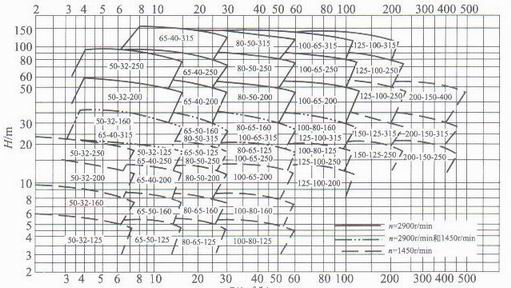 2 3 4 5 6 8 10 20 30 40 50 60 80 100 200 300 400 500
150
100
80
60
50
30
20
10
8
6
5
4
3
2
H/m
65-40-315 80-50-315 100-65-315 125-100-315
50-32-250 65-40-250 80-50-250 100-65-250 125-100-250
50-32-200 65-40-200 80-50-200 100-65-200 125-100-250 200-150-400
50-32-160 65-50-160 80-65-160 100-80-160
65-40-315 80-50-315 100-65-315 125-100-315 150-125-315 200-150-315
50-32-250 50-32-125 65-50-125 80-65-125 100-80-125 150-125-250 200-150-250
65-40-250 80-50-250 100-65-250 125-100-250
50-32-200 65-40-200 80-50-200 100-65-200 125-100-200
50-32-160 65-50-160 80-65-160 100-80-160
50-32-125 65-50-125 80-65-125 100-80-125
n=2900r/min
n=2900r/min和1450r/min
n=1450r/min
3 4 5 6 8 10 20 30 40 50 60 80 100 200 300 400 500